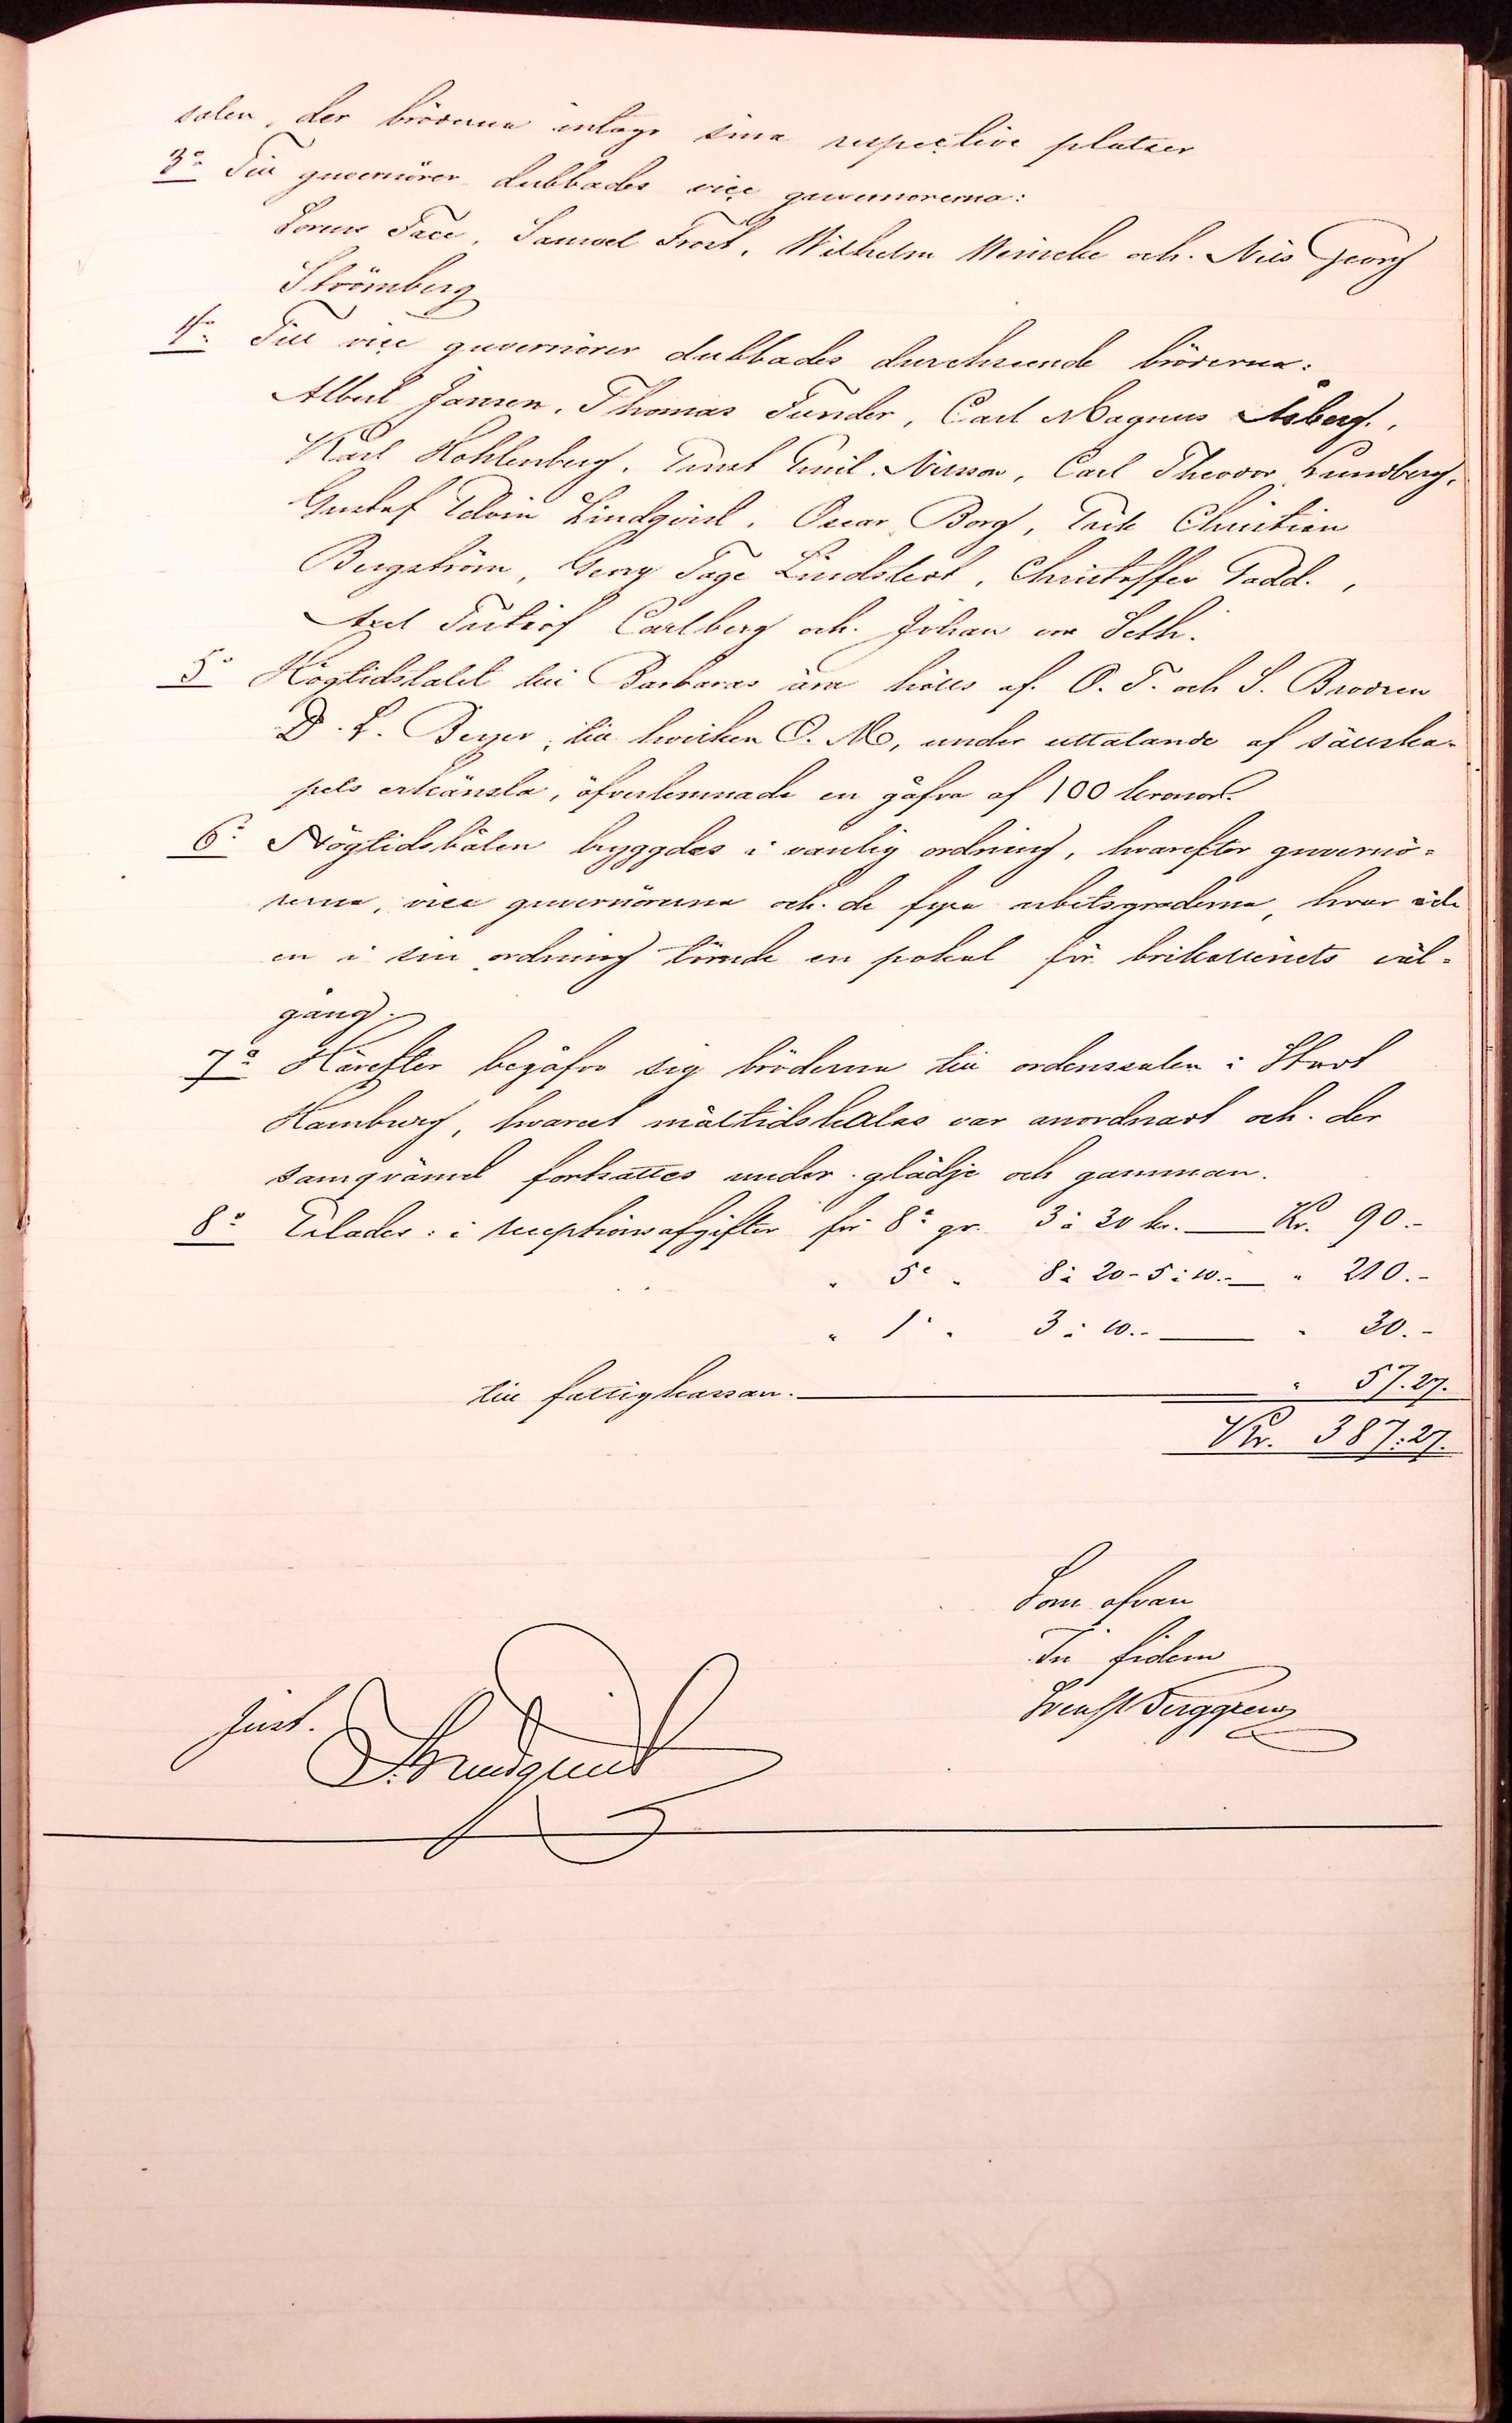 salen, der bröderna intogo sina respective platser
3o Till guvernörer dubbades vice guvernörerna:
Face, Samuel Frost, Wilhelm Meincke och Nils Georg
Strömberg
4o Till vice guvernörer dubbades durchseende bröderna:
Albert Jansen, Thomas Tunder, Carl Magnus Åsberg,
Karl Hohlenberg, Ernst Emil Nilsson, Carl Theodor Lundberg,
Gustaf Edvin Lindqvist, Oscar Borg, Christian
Bergström, Georg Tage Lindstedt, Christoffer Gadd,
Axel Carlberg och Johan von Seth.
5o Högtidstalet till Barbaras ära hölls af O. T. och S. Brodren
D. L. Beyer, till hvilken O. M, under uttalande af sällska-
pets erkänsla, öfverlemnade en gåfva af 100 kronor.
6o Högtidsbålen bryggdes i vanlig ordning, hvarefter guvernö-
rerna, vice guvernörerna och de fyra arbetsgraderna, hvar och
en i sin ordning tömde en pokal för brikolleriets väl-
gång.
7o Härefter begåfvo sig bröderna till ordenssalen i Stadt
Hamburg, hvarest måltidskalas var anordnadt och der
samqvämet fortsattes under glädje och gamman.
8o Erlades: i receptionsafgifter för 8e gr. 3 à 30 kr. Kr. 90.-
" 5e " 8 à 20 - 5 à 10.- " 210.-
" 1e " 3 à 10.- " 30.-
till fattigkassan. " 57.27.
Kr. 387:27.
Som ofvan
In fidem
Berggren
Just.